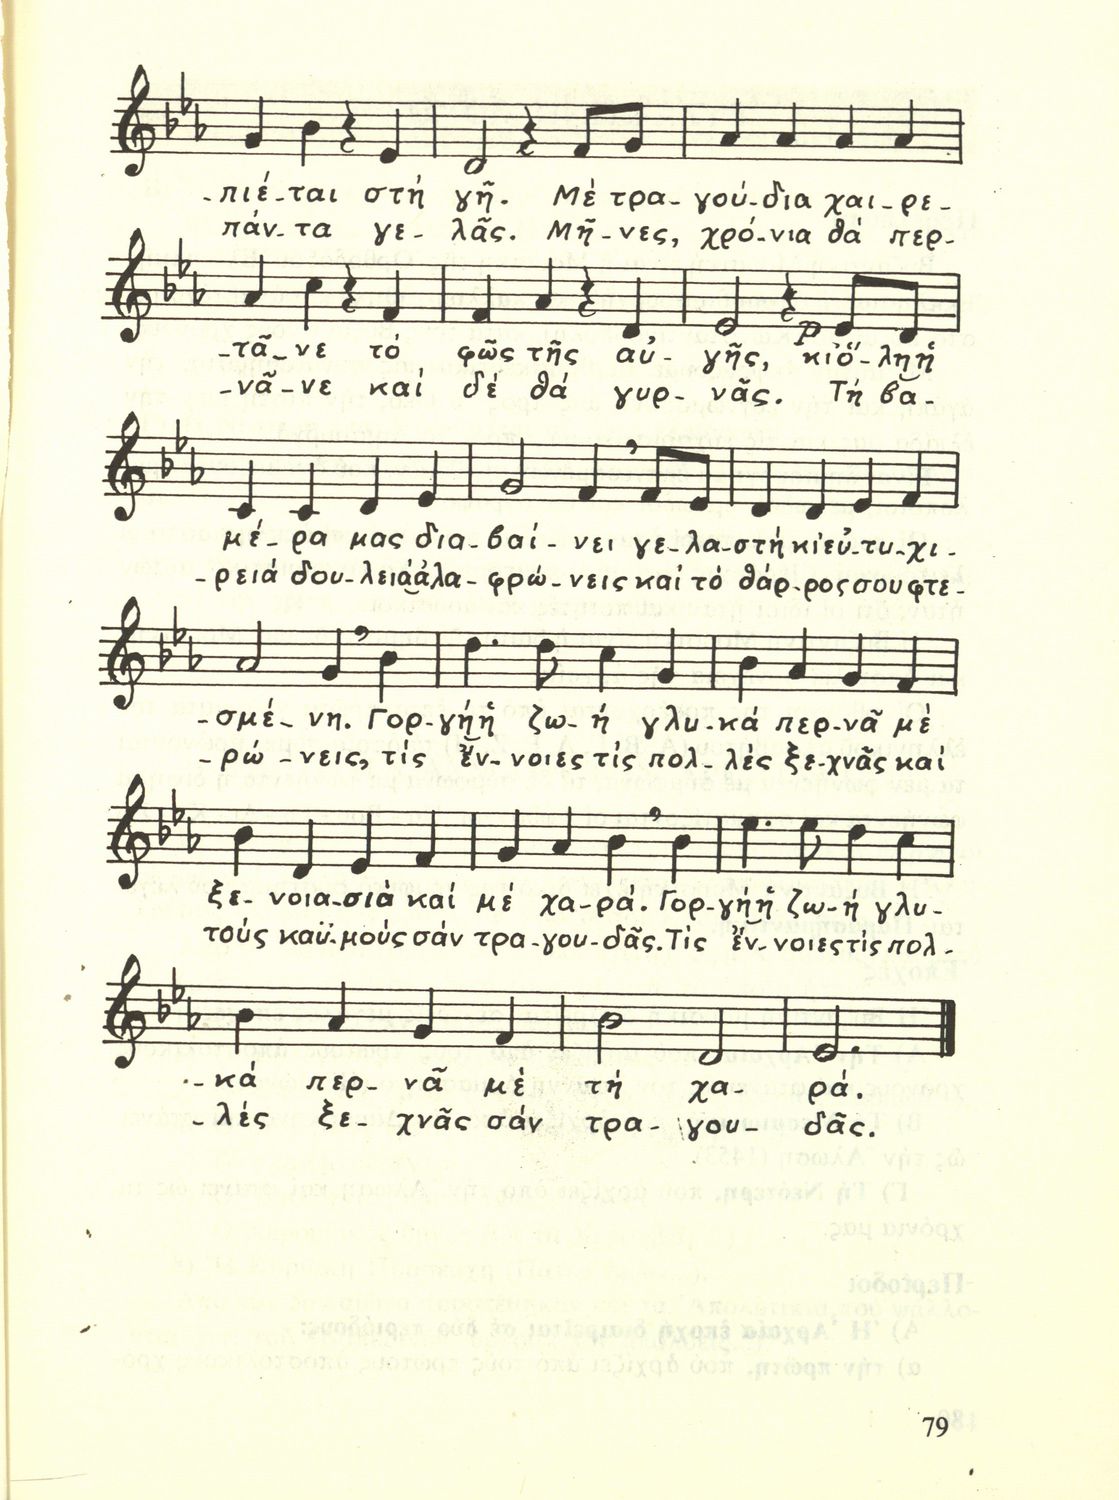 -πιέ-ται στή γῆ. Μέ τρα-γού-δια χαι-ρε-
πάν-τα γε-λᾶς. Μῆ-νες, χρό-νια θά περ-
-τᾶ-νε τό φῶς τῆς αὐ-γῆς, κι ὅ-λη ἡ
-νᾶ-νε καί δέ θά γυρ-νᾶς. Τή βα-
p
μέ-ρα μας δια-βαί-νει γε-λα-στή κι εὐ-τυ-χι-
-ρειά δου-λειά ἀλα-φρώ-νεις καί τό θάρ-ρος σου φτε-
-σμέ-νη. Γορ-γή ἡ ζω-ή γλυ-κά περ-νᾶ μέ
-ρώ-νεις, τίς ἔν-νοιες τίς πολ-λές ξε-χνᾶς καί
ξε-νοια-σιά καί μέ χα-ρά. Γορ-γή ἡ ζω-ή γλυ-
τούς καϋ-μούς σάν τρα-γου-δᾶς. Τίς ἔν-νοιες τίς πολ-
-κά περ-νᾶ μέ τή χα-ρά.
-λές ξε-χνᾶς σάν τρα-γου-δᾶς.
79